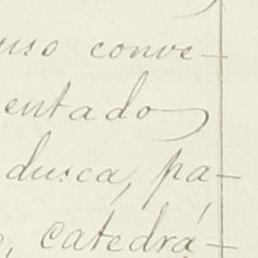 uso conve-
entado
dusca, pa-
catedrá-